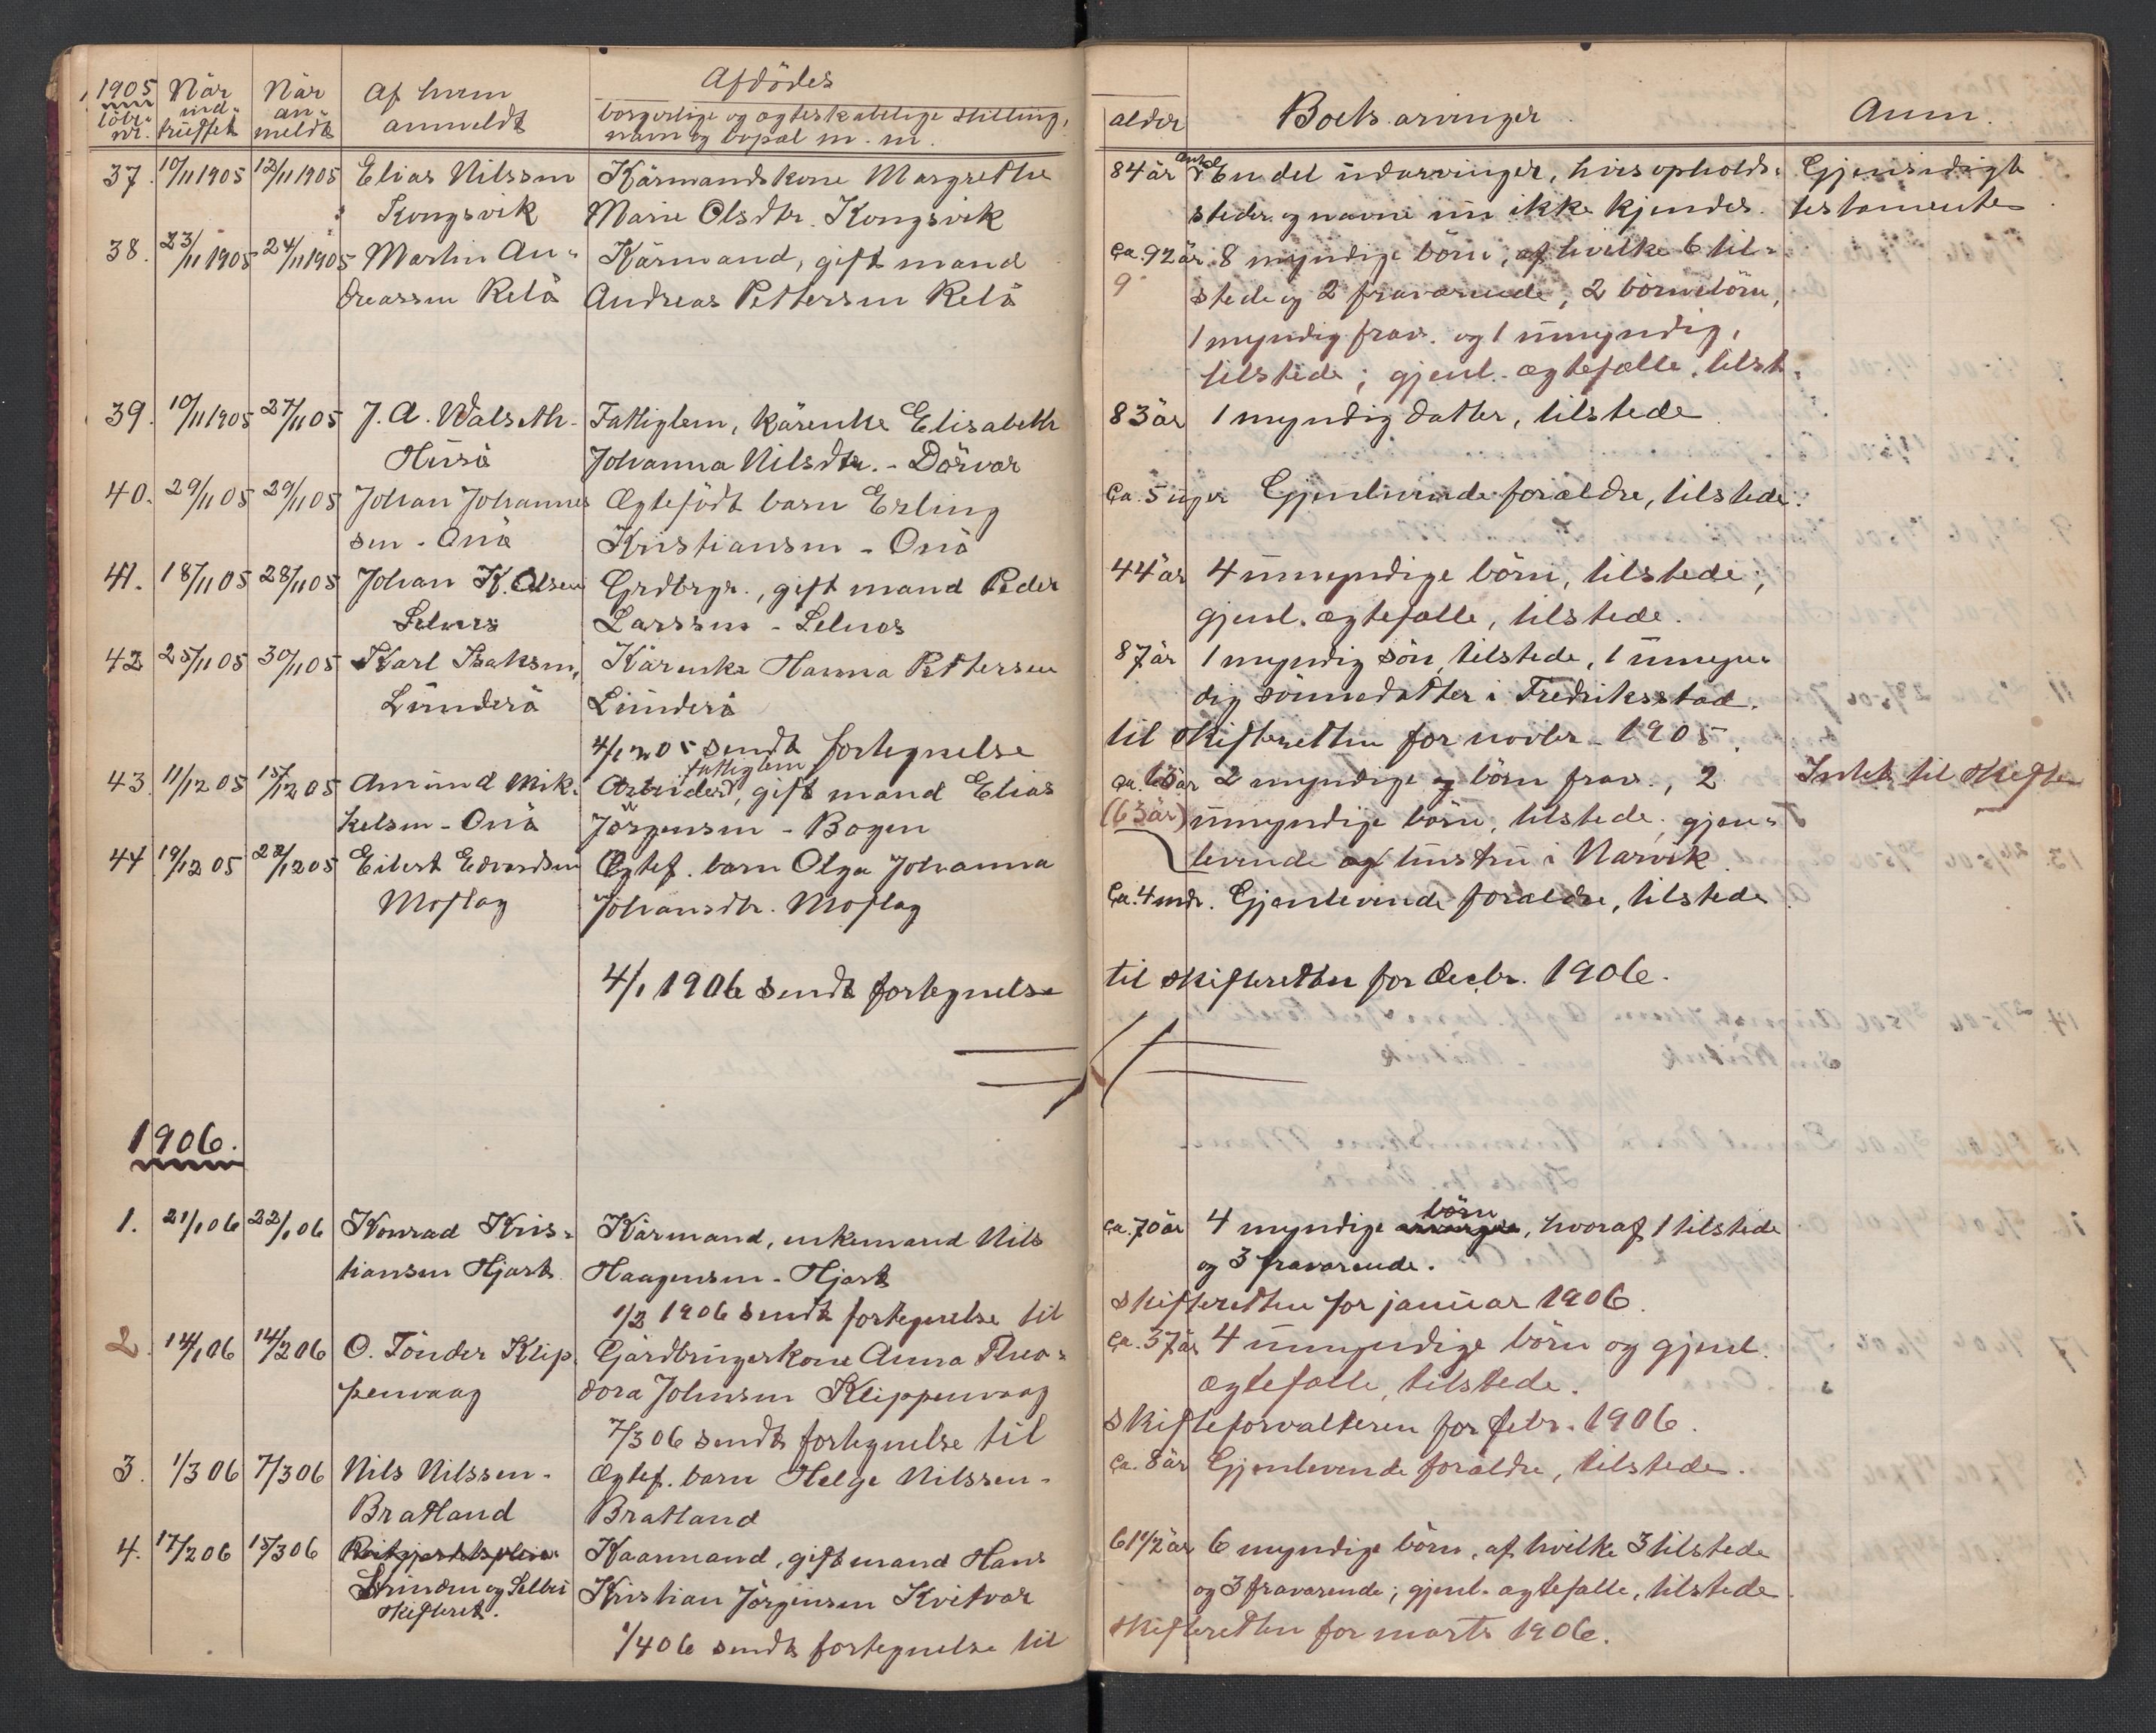 1905
löbe-
nr.
När
ind-
truffet
När
an-
meldt
Af hvem
anmeldt
Afdödes
borgerlige og ægteskabelige stilling,
navn og bopæl m. m.
alder
Boets arvinger
Anm.
37. 10/11 1905 12/11 1905 Elias Nilssen Kårmandskone Margrethe 84 år En del udarvinger, hvis opholds- Gjensidigt
Kongsvik Marie Olsdtr. Kongsvik steder og navne nu ikke kjendes. testamente
38. 23/11 1905 24/11 1905 Martin An- Kårmand, gift mand ca. 92 år 8 myndige börn, af hvilke 6 til-
dreassen Relö Andreas Pettersen Relö 9 stede og 2 fraværende, 2 börnebörn,
1 myndig frav. og 1 umyndig,
tilstede; gjenl. ægtefælle, tilst.
39. 10/11 1905 27/11 05 J. A. Walseth- Fattiglem, kårenke Elisabeth 83 år 1 myndig datter, tilstede
Huså Johanna Nilsdtr. - Dårvær
40. 29/11 05 29/11 05 Johan Johannes Ægtefödt barn Erling ca. 5 uger Gjenlevende forældre, tilstede.
sen - Onö Kristiansen - Onö
41. 18/11 05 28/11 05 Johan K. Olsen Grdbrgr., gift mand Peder 44 år 4 umyndige börn, tilstede;
Selnes Larssen - Selnes gjenl. ægtefælle, tilstede.
42 25/11 05 30/11 05 Karl Isaksen, Kårenke Hanna Pettersen 87 år 1 myndig sön, tilstede, 1 umyn-
Lunderö Lunderö dig sönnedatter i Fredriksstad.
4/12 05 sendt fortegnelse til skifteretten for novbr. 1905.
fattiglem
43. 11/12 05 15/12 05 Amund Mik- Arbeider, gift mand Elias ca. 65 år 2 myndige börn frav., 2 Intet til skifte
kelsen - Onö Jörgensen - Bogen (63 år) umyndige börn, tilstede, gjen-
levende hustru i Narvik
44 19/12 05 22/12 05 Eilert Edvardsen Ægtef. barn Olga Johanna ca. 4 mdr. Gjenlevende forældre, tilstede
Moflag Johansdtr. Moflag
4/1 1906 sendt fortegnelse til skifteretten for decbr. 1906.
1906.
1. 21/1 06 22/1 06 Konrad Kris- Kårmand, enkemand Nils ca. 70 år 4 myndige börn, hvoraf 1 tilstede
tiansen Hjart Haagensen - Hjart og 3 fraværende.
1/2 1906 sendt fortegnelse til skifteretten for januar 1906.
2. 14/1 06 14/2 06 O. Tönder Klip- Gårdbrugerkone Anna Theo- ca. 37 år 4 umyndige börn og gjenl.
penvaag dora Johnsen Klippenvaag ægtefælle, tilstede.
7/3 06 sendt fortegnelse til skifteforvalteren for febr. 1906.
3. 1/3 06 7/3 06 Nils Nilssen- Ægtef. barn Helge Nilssen- ca. 8 år Gjenlevende forældre, tilstede.
Bratland Bratland
4. 17/2 06 15/3 06 Kaarmand, gift mand Hans 61 1/2 år 6 myndige börn, af hvilke 3 tilstede
Strinden og Selbu Kristian Jörgensen Kvitvær og 3 fraværende; gjenl. ægtefælle, tilstede
skifteret.
1/4 06 sendt fortegnelse til skifteretten for marts 1906.